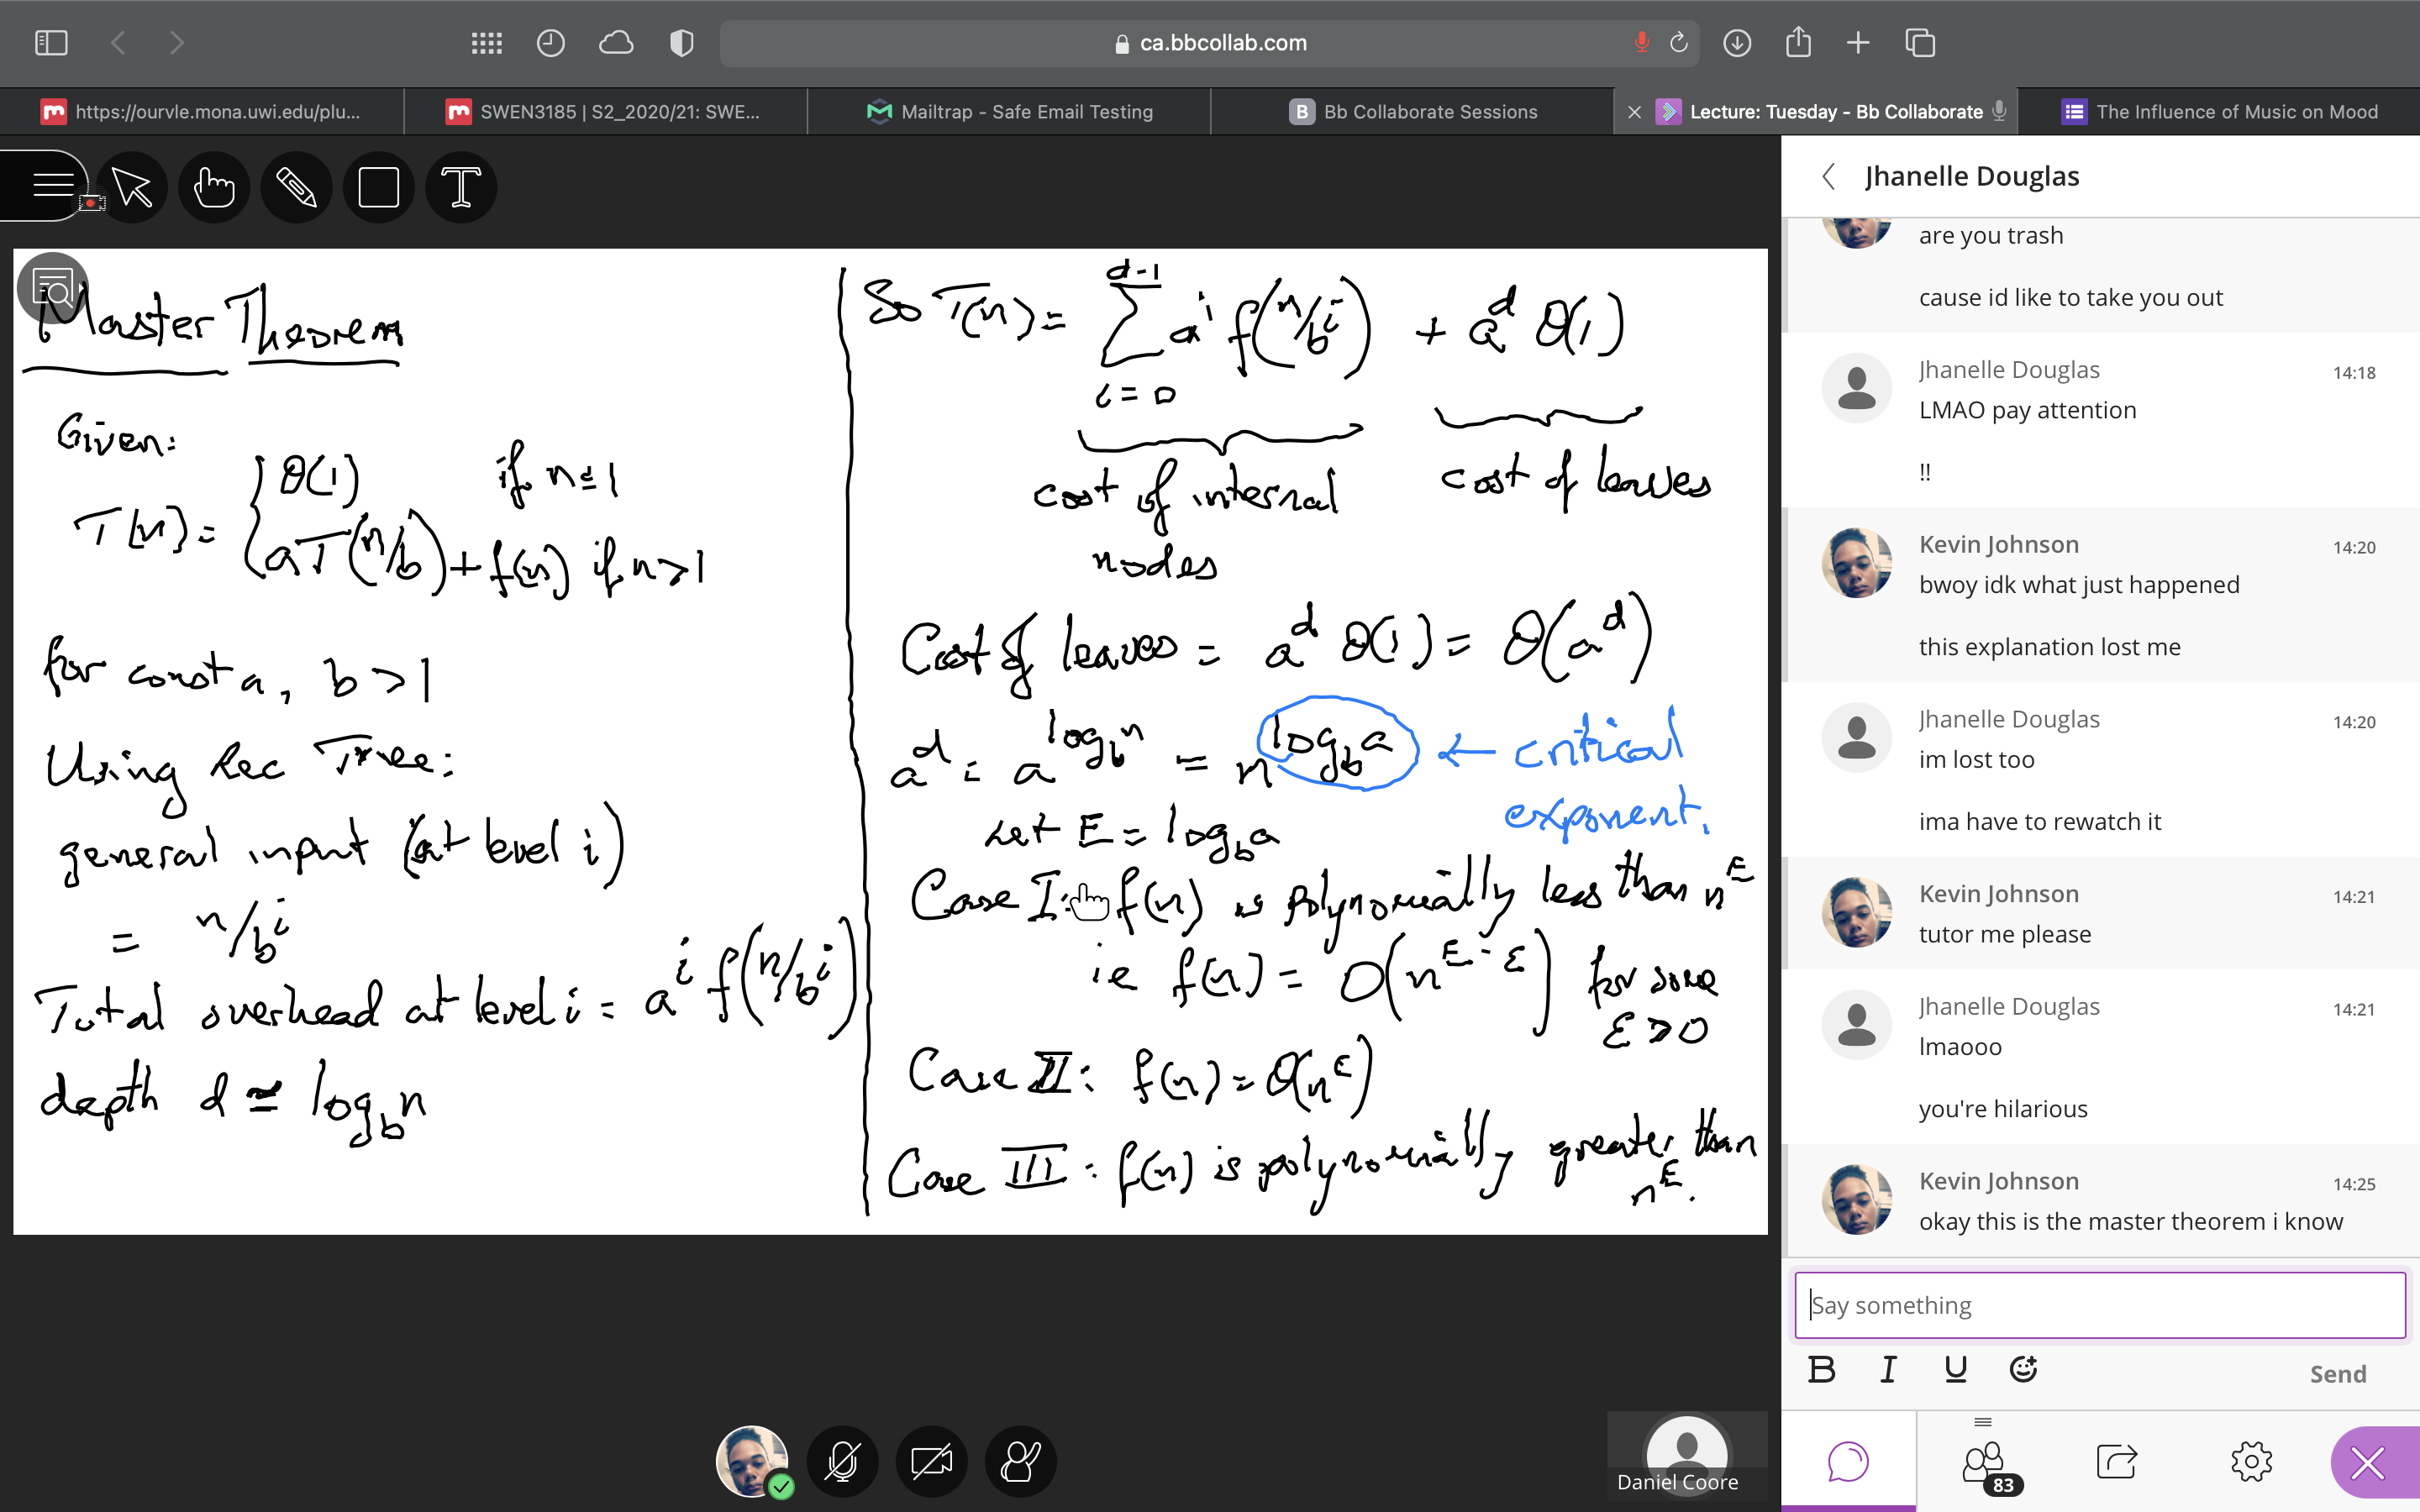 ca.bbcollab.com
https://ourvle.mona.uwi.edu/plu...
SWEN3185 | S2_2020/21: SWE...
Mailtrap - Safe Email Testing
B Bb Collaborate Sessions
Lecture: Tuesday - Bb Collaborate
The Influence of Music on Mood
T
Master Theorem
Given:
T(n) = { Θ(1) if n ≤ 1
aT(n/b) + f(n) if n > 1
for const a, b > 1
Using Rec Tree:
general input (at level i)
= n/b^i
Total overhead at level i = a^i f(n/b^i)
depth d ≃ log_b n
So T(n) = Σ_{i=0}^{d-1} a^i f(n/b^i) + a^d Θ(1)
cost of internal nodes
cost of leaves
Cost of leaves = a^d Θ(1) = Θ(a^d)
a^d = a^{log_b n} = n^{log_b a} ← critical
exponent.
Let E = log_b a
Case I: f(n) is polynomially less than n^E
ie f(n) = O(n^{E-ε}) for some
ε > 0
Case II: f(n) = Θ(n^E)
Case III: f(n) is polynomially greater than
n^E.
Daniel Coore
Jhanelle Douglas
are you trash
cause id like to take you out
Jhanelle Douglas 14:18
LMAO pay attention
!!
Kevin Johnson 14:20
bwoy idk what just happened
this explanation lost me
Jhanelle Douglas 14:20
im lost too
ima have to rewatch it
Kevin Johnson 14:21
tutor me please
Jhanelle Douglas 14:21
lmaooo
you're hilarious
Kevin Johnson 14:25
okay this is the master theorem i know
Say something
B I U Send
83